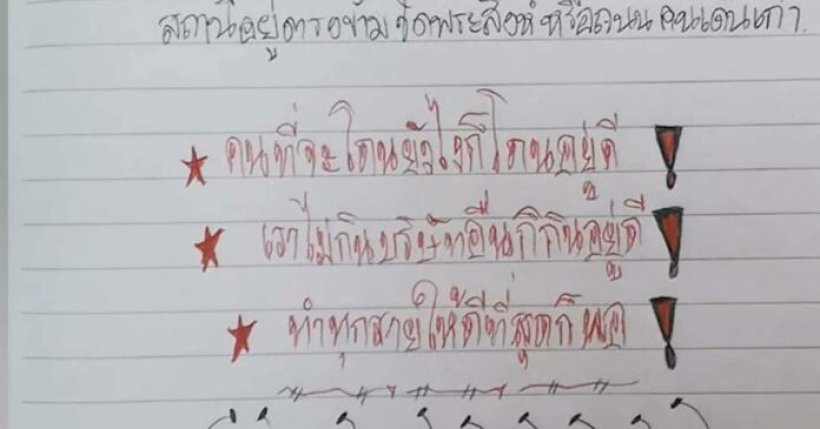 สถานีอยู่ตรงข้าม วัดพระสิงห์ หรือถนน คนเดินเก่า.
คนที่จะโดนยังไงก็โดนอยู่ดี
เราไม่กินบริษัทอื่นก็กินอยู่ดี
ทำทุกสายให้ดีที่สุดก็พอ